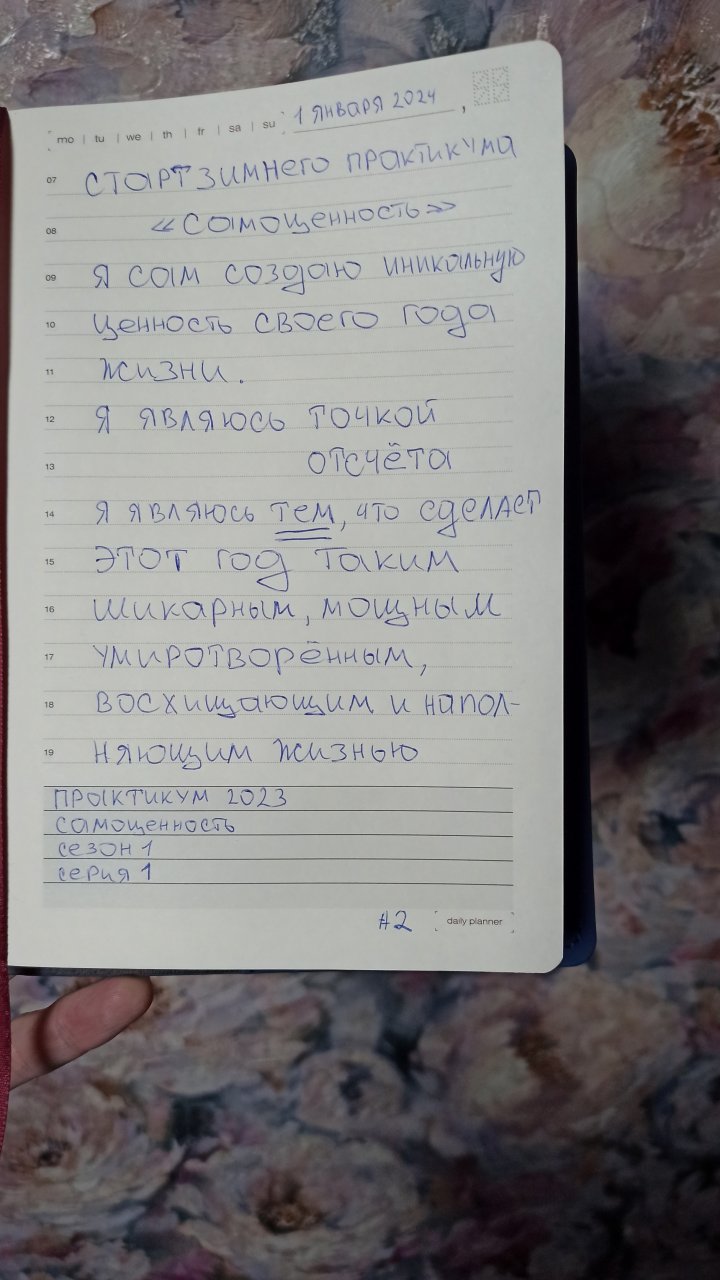 mo | tu | we | th | fr | sa | su 1 января 2024 ,
07 старт зимнего практикума
08 «Самоценность»
09 Я сам создаю уникальную
10 ценность своего года
11 жизни.
12 Я являюсь точкой
13 отсчёта
14 Я являюсь тем, что сделает
15 этот год таким
16 шикарным, мощным
17 умиротворённым,
18 восхищающим и напол-
19 няющим жизнью
практикум 2023
самоценность
сезон 1
серия 1
#2 daily planner